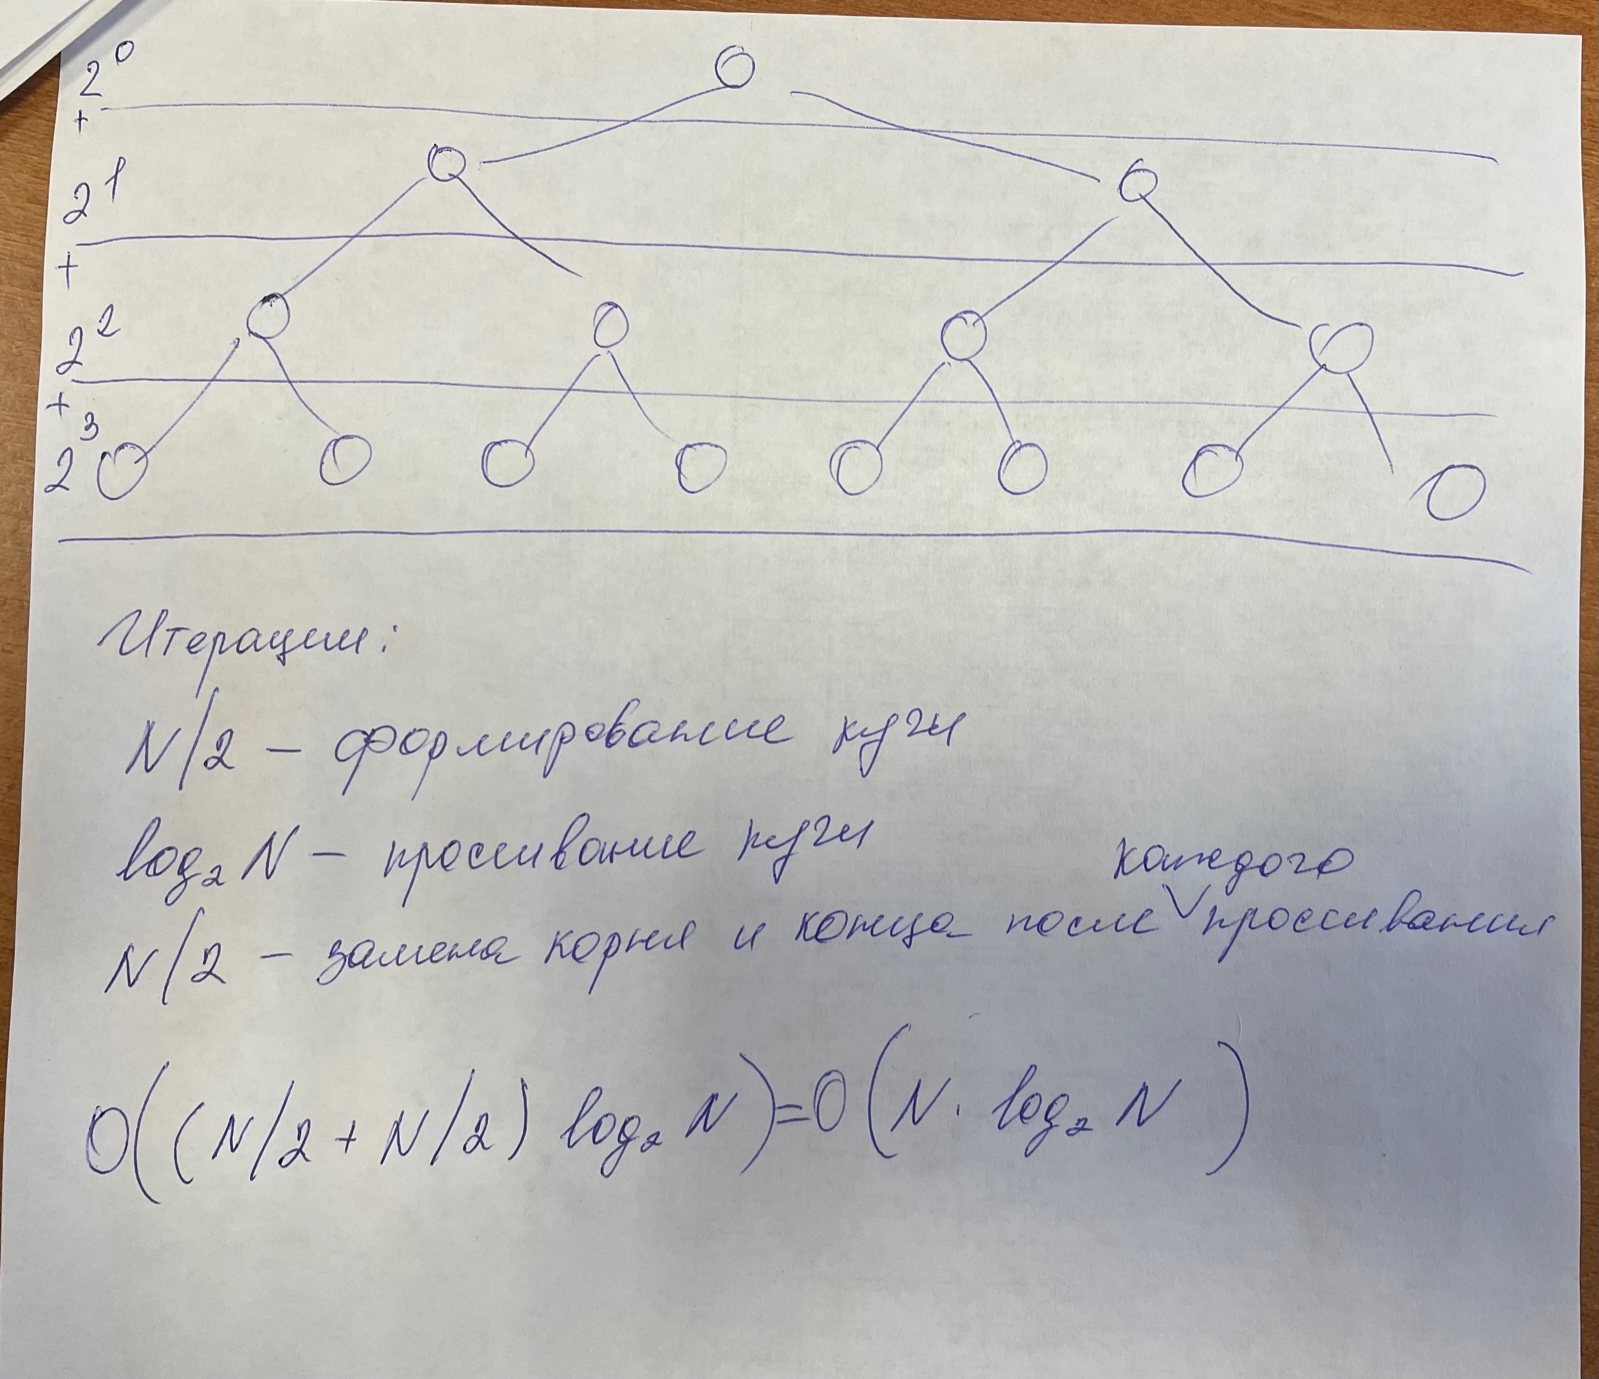 2⁰
+
2¹
+
2²
+
2³
Итерации:
N/2 – формирование кучи
log₂ N – просеивание кучи
каждого
N/2 – замена корня и конца после ∨ просеивания
O((N/2 + N/2) log₂ N) = O(N · log₂ N)